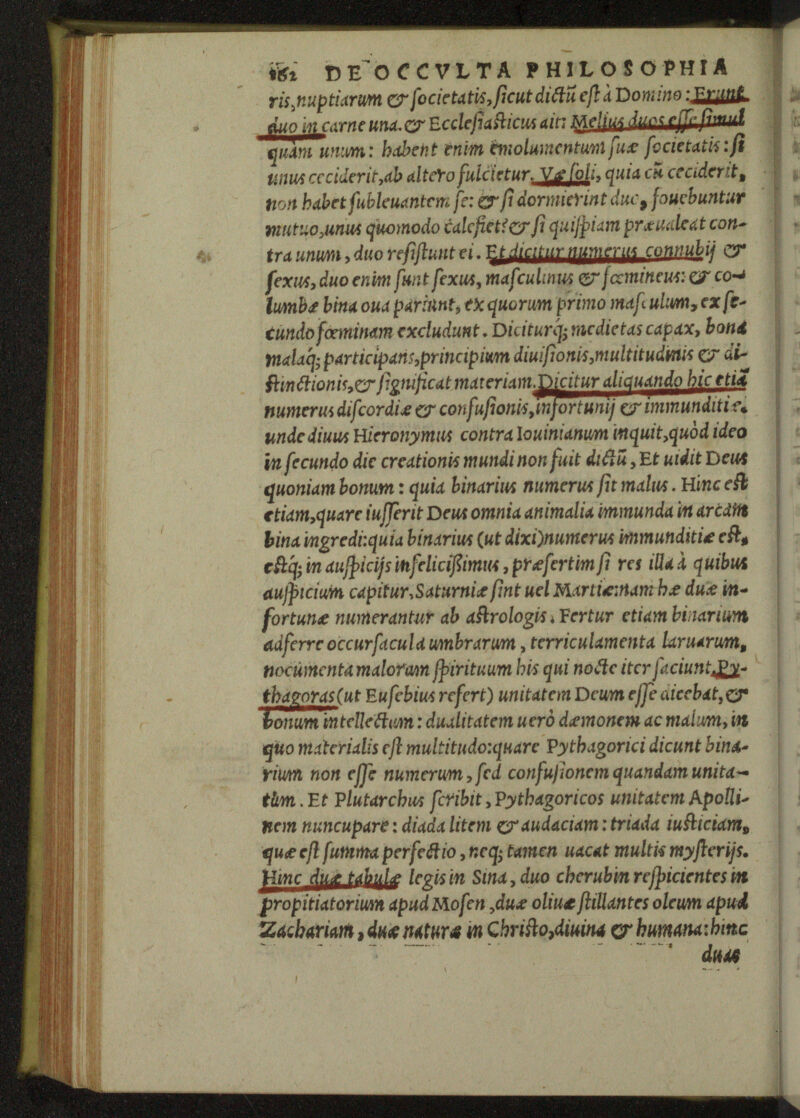 182 DE OCCVLTA PHILOSOPHIA
ris,nuptiarum & ſocietatis,ſicut dictū eſt à Domino : Erunt
duo in carne una.& Eccleſiaſticus ait: Melius duos eſſe ſimul
quàm unum: habent enim emolumentum ſuæ ſocietatis : ſi
unus ceciderit,ab altero fulcietur. Væ ſoli, quia cū ceciderit,
non habet ſubleuantem ſe: & ſi dormierint duo, fouebuntur
mutuo,unus quomodo calefiet? & ſi quiſpiam præualeat con-
tra unum, duo reſiſtunt ei. Et dicitur numerus connubij &
ſexus, duo enim ſunt ſexus, maſculinus & fœmineus: & co-
lumbæ bina oua pariunt, ex quorum primo maſculum, ex ſe-
cundo fœminam excludunt. Diciturq; medietas capax, bona
malaq; participans,principium diuiſionis,multitudinis & di-
ſtinctionis,& ſignificat materiam. Dicitur aliquando hic etiā
numerus diſcordiæ & confuſionis,infortunij & immunditiæ.
unde diuus Hieronymus contra Iouinianum inquit,quòd ideo
in ſecundo die creationis mundi non fuit dictū, Et uidit Deus
quoniam bonum: quia binarius numerus ſit malus. Hinc eſt
etiam,quare iuſſerit Deus omnia animalia immunda in arcam
bina ingredi:quia binarius (ut dixi)numerus immunditiæ eſt,
eſtq; in auſpicijs infeliciſſimus, præſertim ſi res illa à quibus
auſpicium capitur,Saturniæ ſint uel Martiæ:nam hæ duæ in-
fortunæ numerantur ab aſtrologis. Fertur etiam binarium
adferre occurſacula umbrarum, terriculamenta laruarum,
nocumenta malorum ſpirituum his qui nocte iter faciunt. Py-
thagoras (ut Euſebius refert) unitatem Deum eſſe dicebat,&
bonum intellectum: dualitatem uerò dæmonem ac malum, in
quo materialis eſt multitudo:quare Pythagorici dicunt bina-
rium non eſſe numerum, ſed confuſionem quandam unita-
tum. Et Plutarchus ſcribit, Pythagoricos unitatem Apolli-
nem nuncupare: diada litem & audaciam: triada iuſticiam,
quæ eſt ſumma perfectio, neq; tamen uacat multis myſterijs.
Hinc duæ tabulæ legis in Sina, duo cherubin reſpicientes in
propitiatorium apud Moſen ,duæ oliuæ ſtillantes oleum apud
Zachariam, duæ naturæ in Chriſto,diuina & humana:hinc
duas